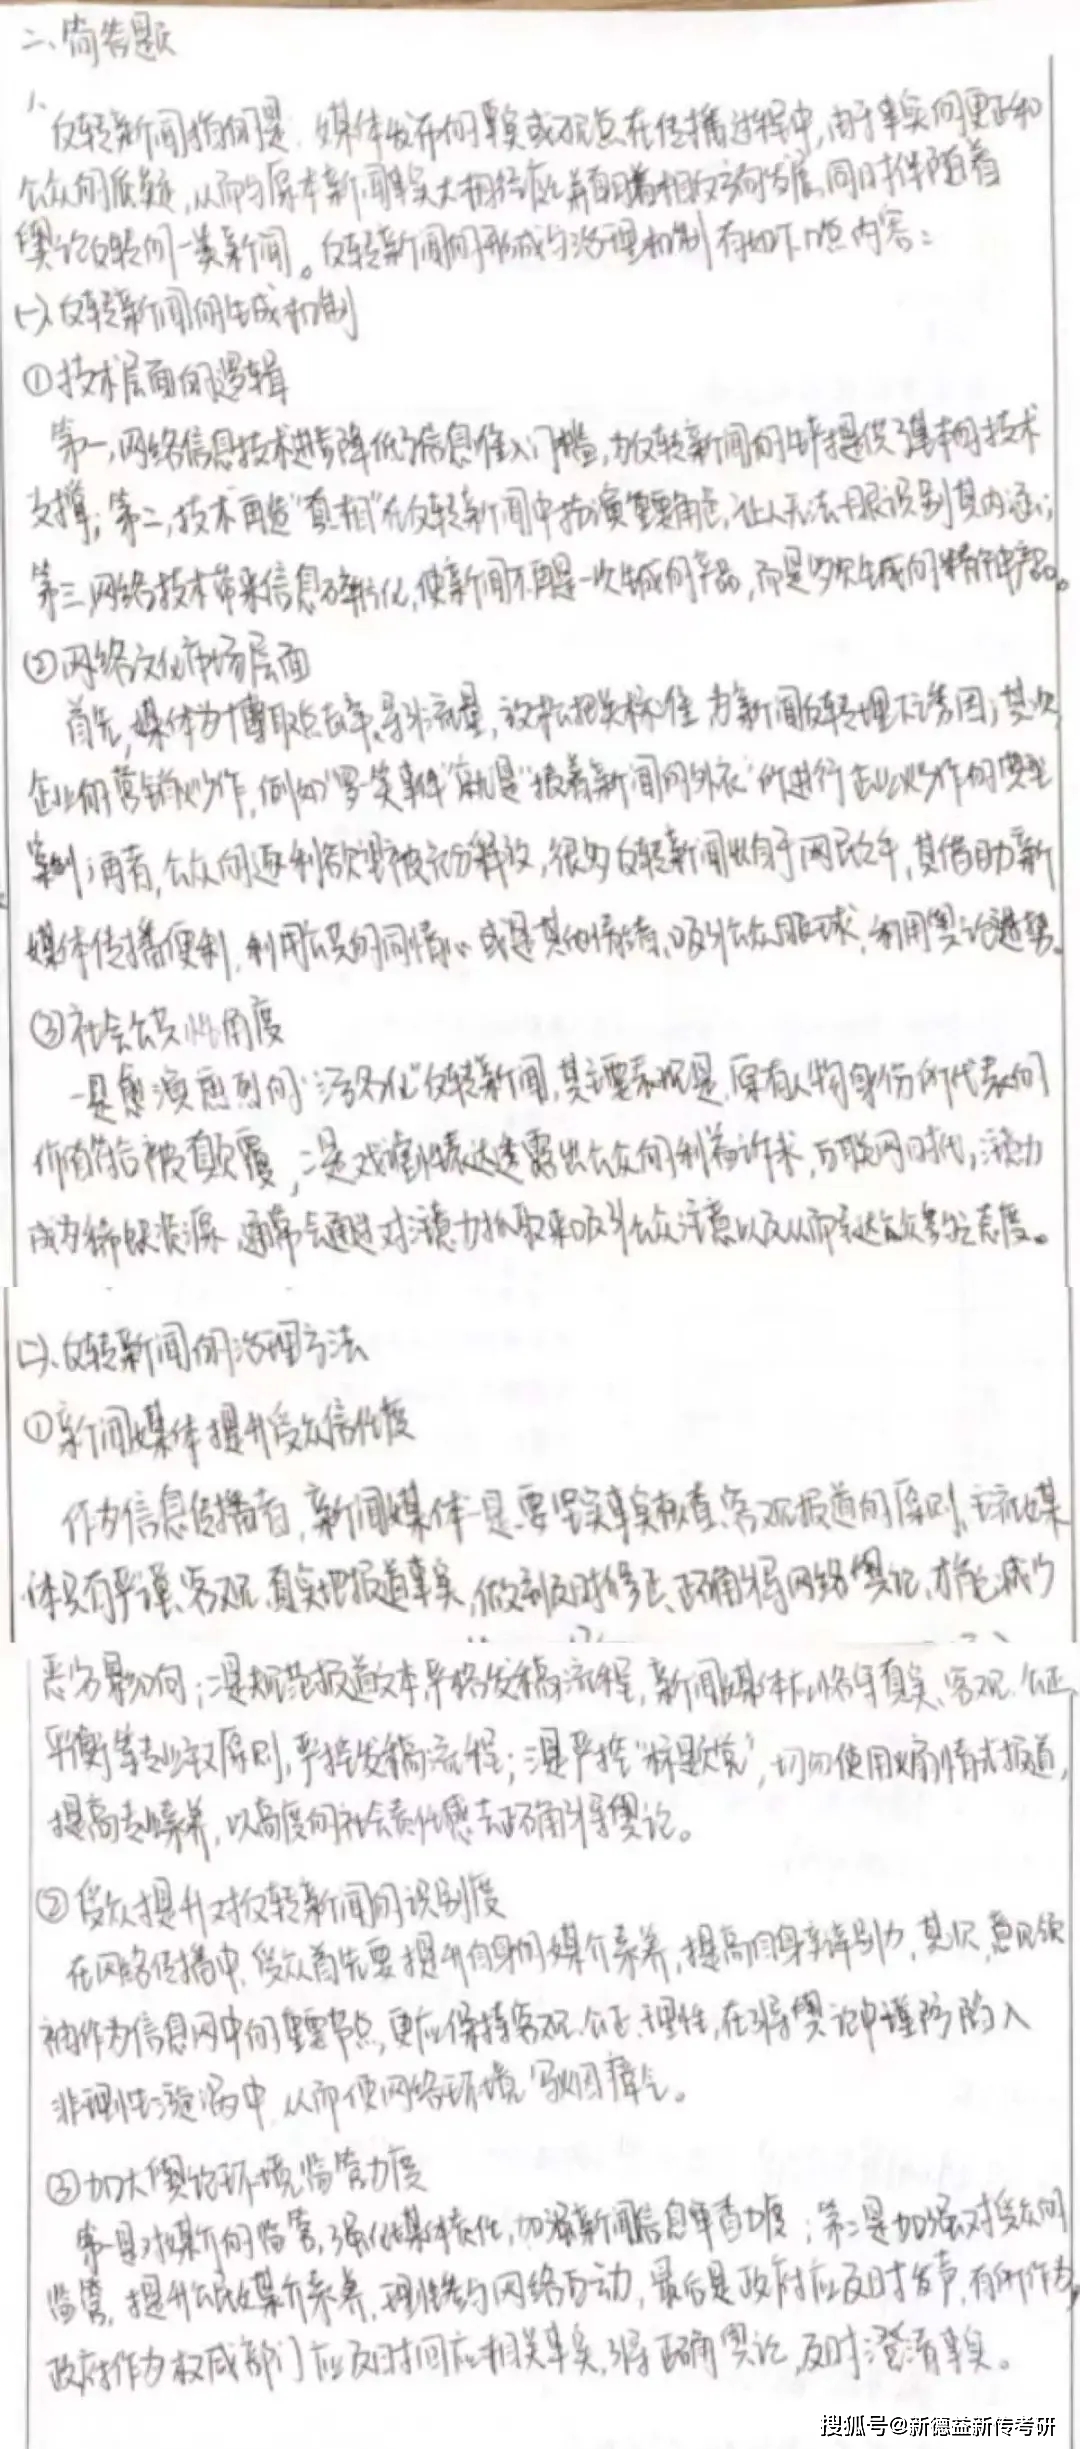 二、简答题
1、
反转新闻指的是：媒体发布的事实或观点在传播过程中，由于事实的更正和
公众的质疑，从而与原本新闻事实大相径庭并朝着相反方向发展，同时伴随着
舆论反转的一类新闻。反转新闻的形成与治理机制有如下几点内容：
(一)、反转新闻的生成机制
①技术层面的逻辑
第一，网络信息技术进步降低了信息准入门槛，为反转新闻的生产提供了基本的技术
支撑；第二，技术再造“真相”在反转新闻中扮演重要角色，让人无法一眼识别其内涵；
第三，网络技术带来信息碎片化，使新闻不再是一次生成的产品，而是多次生成的精神产品。
②网络文化市场层面
首先，媒体为了博取点击率、寻求流量，放松把关标准，为新闻反转埋下诱因；其次，
企业的营销炒作，例如“罗一笑事件”就是“披着新闻的外衣”所进行商业炒作的典型
案例；再者，公众的逐利欲望被充分释放，很多反转新闻出自于网民之手，其借助新
媒体传播便利，利用公众的同情心或是其他情绪，吸引公众眼球，利用舆论造势。
③社会公共性角度
一是愈演愈烈的“污名化”反转新闻，其主要表现是，原有人物身份所代表的
价值符合被颠覆，二是戏谑性表达透露出公众的利益诉求，互联网时代，注意力
成为稀缺资源，通常会通过对注意力抓取来吸引公众注意以及从而表达公众参与态度。
(二)、反转新闻的治理方法
①新闻媒体提升受众信任度
作为信息传播者，新闻媒体一是要坚实事实核查、客观报道的原则，主流媒
体只有严谨、客观、真实地报道事实，做到及时修正、正确引导网络舆论，才能减少
恶劣影响；二是规范报道文本，严格发稿流程，新闻媒体应恪守真实、客观、公正、
平衡等专业主义原则，严控发稿流程；三是严控“标题党”，切勿使用煽情式报道，
提高专业素养，以高度的社会责任感去正确引导舆论。
②受众提升对反转新闻的识别度
在网络传播中，受众首先要提升自身的媒介素养，提高自身辨别力，其次，意见领
袖作为信息网中的重要节点，更应保持客观、公正、理性，在引导舆论中谨防陷入
非理性漩涡中，从而使网络环境乌烟瘴气。
③加大舆论环境监管力度
第一是对媒介的监管，强化媒体责任，加强新闻信息审查力度；第二是加强对受众的
监管，提升公民媒介素养，理性参与网络互动，最后是政府应及时发声，有所作为，
政府作为权威部门应及时回应相关事实，引导正确舆论，及时澄清事实。
搜狐号@新德益新传考研